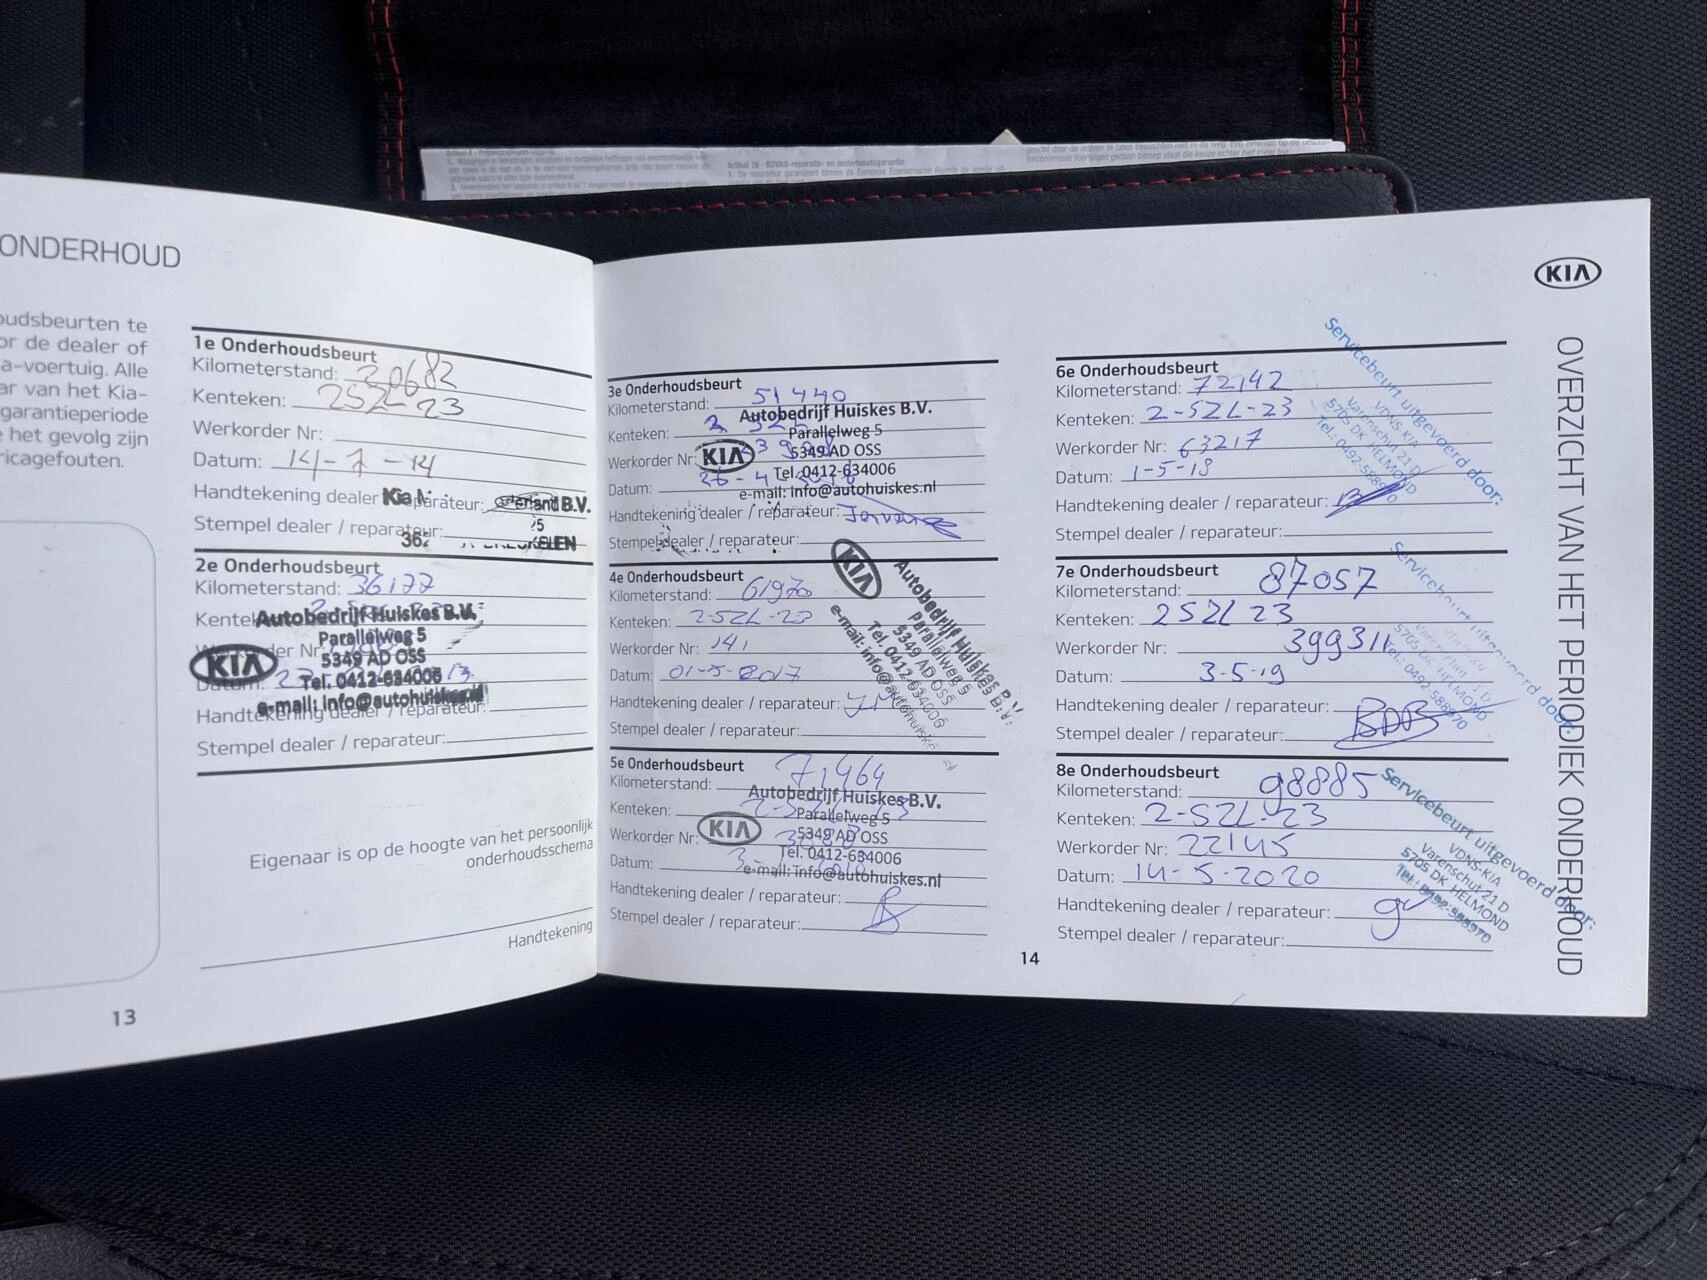 1. De reparateur garandeert binnen de Europese Economische Ruimte de goede uit-
Artikel 18 - BOVAG-reparatie- en onderhoudsgarantie
ONDERHOUD
oudsbeurten te
or de dealer of
a-voertuig. Alle
ar van het Kia-
garantieperiode
e het gevolg zijn
ricagefouten.
13
1e Onderhoudsbeurt
Kilometerstand: 20682
Kenteken: 2SZL-23
Werkorder Nr:
Datum: 14-7-14
Handtekening dealer Kia parateur: erland B.V.
Stempel dealer / reparateur:
2e Onderhoudsbeurt
Kilometerstand: 36177
Autobedrijf Huiskes B.V.
Parallelweg 5
KIA
5349 AD OSS
Tel. 0412-634006
e-mail: info@autohuiskes.nl
Handtekening dealer / reparateur:
Stempel dealer / reparateur:
Eigenaar is op de hoogte van het persoonlijk
onderhoudsschema
Handtekening
3e Onderhoudsbeurt
Kilometerstand: 51440
Autobedrijf Huiskes B.V.
Kenteken:
Parallelweg 5
Werkorder Nr:
KIA
5349 AD OSS
Tel. 0412-634006
Datum:
e-mail: info@autohuiskes.nl
Handtekening dealer / reparateur:
Stempel dealer / reparateur:
4e Onderhoudsbeurt
Kilometerstand: 61970
Kenteken: 2-SZL-23
Werkorder Nr: 141
Datum: 01-5-2017
Handtekening dealer / reparateur:
Stempel dealer / reparateur:
KIA
Autobedrijf Huiskes B.V.
Parallelweg 5
5349 AD OSS
Tel. 0412-634006
e-mail: info@autohuiskes
5e Onderhoudsbeurt
Kilometerstand: 71464
Autobedrijf Huiskes B.V.
Kenteken:
Parallelweg 5
Werkorder Nr:
KIA
5349 AD OSS
Tel. 0412-634006
Datum:
e-mail: info@autohuiskes.nl
Handtekening dealer / reparateur:
Stempel dealer / reparateur:
14
6e Onderhoudsbeurt
Kilometerstand: 72142
Kenteken: 2-SZL-23
Werkorder Nr: 63217
Datum: 1-5-18
Handtekening dealer / reparateur:
Stempel dealer / reparateur:
Servicebeurt uitgevoerd door:
VDNS KIA
Varenschut 21 D
5705 DK HELMOND
Tel.: 0492-588970
7e Onderhoudsbeurt
Kilometerstand: 87057
Kenteken: 2SZL 23
Werkorder Nr: 399311
Datum: 3-5-19
Handtekening dealer / reparateur:
Stempel dealer / reparateur:
Servicebeurt uitgevoerd door:
5705 DK HELMOND
Tel.: 0492-588970
8e Onderhoudsbeurt
Kilometerstand: 98885
Kenteken: 2-SZL-23
Werkorder Nr: 22145
Datum: 14-5-2020
Handtekening dealer / reparateur:
Stempel dealer / reparateur:
Servicebeurt uitgevoerd door:
VDNS-KIA
Varenschut 21 D
5705 DK HELMOND
Tel.: 0492-588970
KIA
OVERZICHT VAN HET PERIODIEK ONDERHOUD